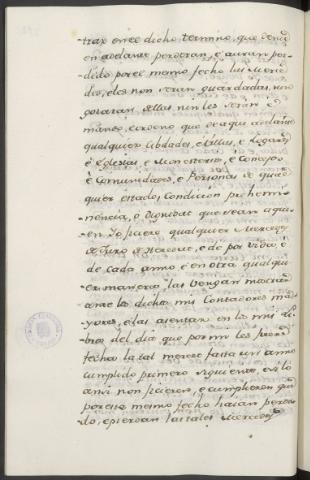 -trax en el dicho termino, que dend
en adelante perderan, è auran per-
dido por el mesmo fecho las Merce
des, e les non seran guardadas, nin
gozaran dellas nin les seran d
mandè, è ordeno que de aqui adelante
qualquier Cibdades, è Villas, è Lugares
è Eglesias, è Monesterios, è Conçejos
è Comunidades, è Personas de qual
quier estado, Condicion, prehemi-
nencia, o Dignidat que sean a qui-
en Yo ficiere qualquier Merced
de Juro de Heredat, è de por vida, è
de cada anno è en otra qualqui-
er manera, las vengan mostrar
ante los dichos mis Contadores ma-
yores, è las asientan en los mis Li-
bros del dia que por mi les fuere
fecha la tal merced fasta un anno
cumplido primero siguiente, è si lo
ansi non ficieren, è cumplieren que
por ese mesmo fecho hayan perdi-
do, è pierdan las tales Mercedes